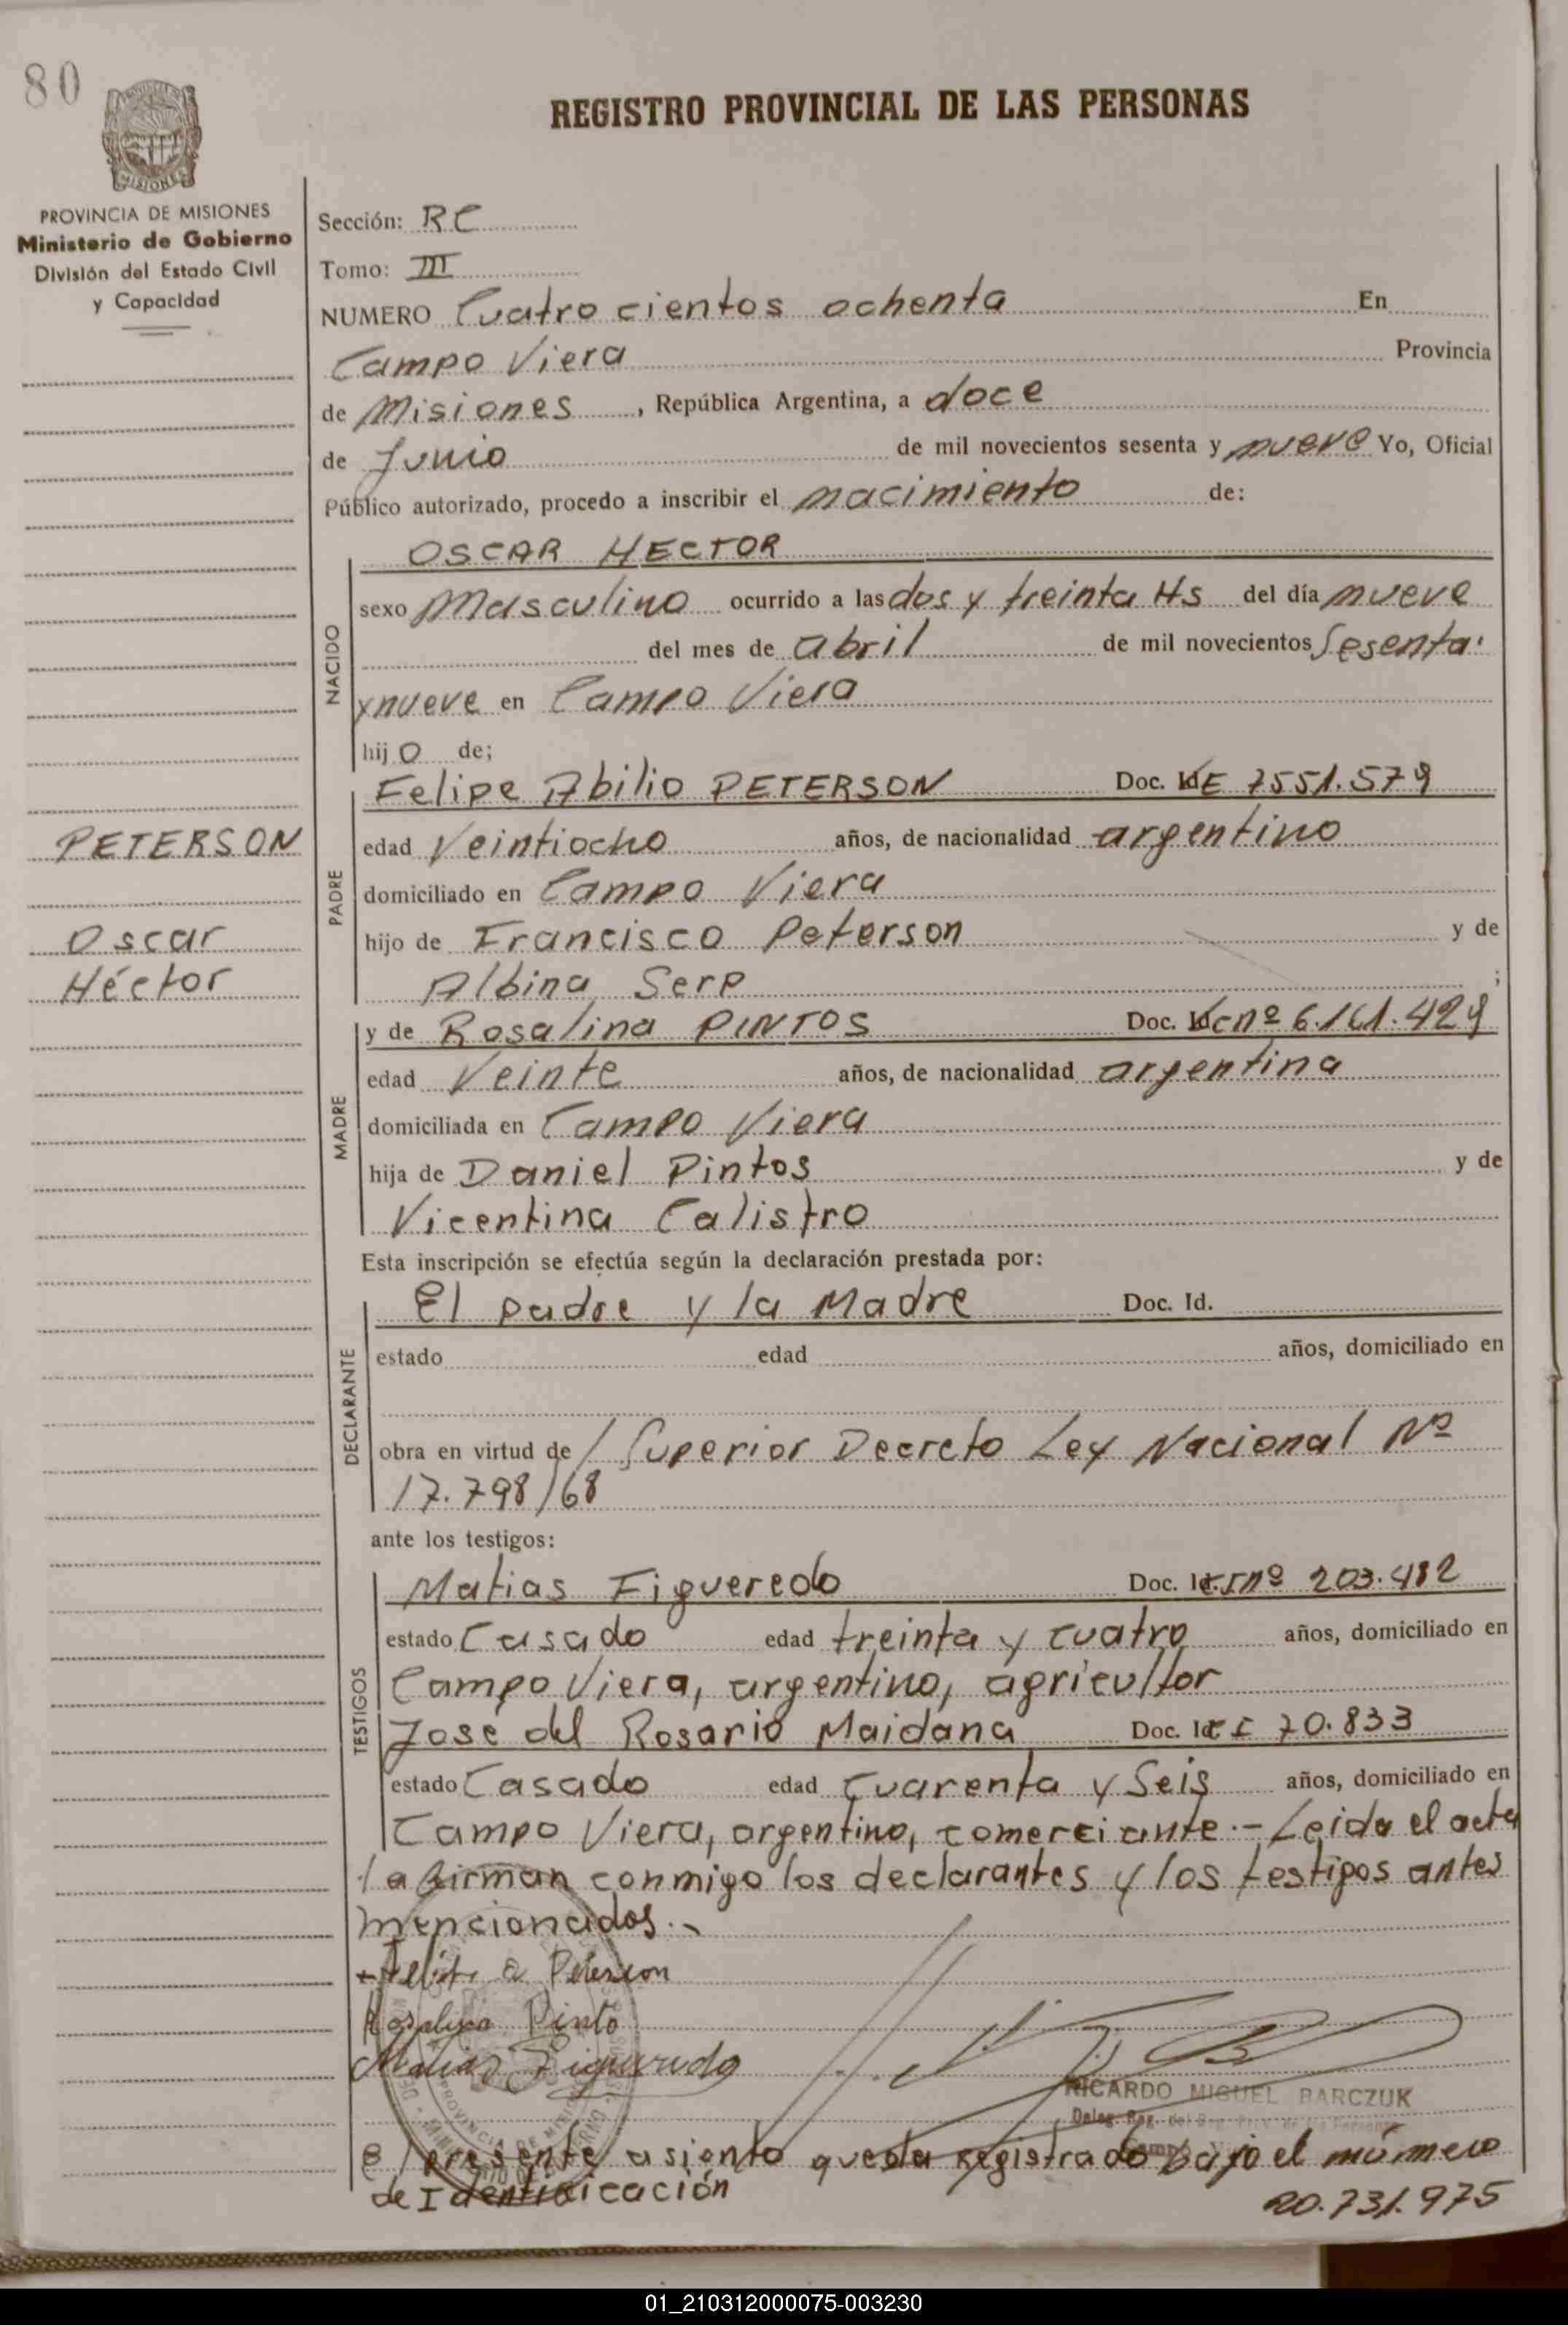 80
REGISTRO PROVINCIAL DE LAS PERSONAS
MISIONES
PROVINCIA DE MISIONES
Ministerio de Gobierno
División del Estado Civil
y Capacidad
Sección: RC
Tomo: III
NUMERO Cuatro cientos ochenta En
Campo Viera Provincia
de Misiones, República Argentina, a doce
de Junio de mil novecientos sesenta y nueve Yo, Oficial
Público autorizado, procedo a inscribir el nacimiento de:
NACIDO
OSCAR HECTOR
sexo Masculino ocurrido a las dos y treinta Hs del día nueve
del mes de abril de mil novecientos Sesenta
y nueve en Campo Viera
hijo de;
PADRE
Felipe Abilio PETERSON Doc. Id E 7551.579
PETERSON
edad Veintiocho años, de nacionalidad argentino
domiciliado en Campo Viera
Oscar
hijo de Francisco Peterson y de
Héctor
Albina Serp ;
MADRE
y de Rosalina PINTOS Doc. Id c nº 6.161.429
edad Veinte años, de nacionalidad argentina
domiciliada en Campo Viera
hija de Daniel Pintos y de
Vicentina Calistro
Esta inscripción se efectúa según la declaración prestada por:
DECLARANTE
El padre y la Madre Doc. Id.
estado edad años, domiciliado en
obra en virtud de / Superior Decreto Ley Nacional Nº
17.798/68
ante los testigos:
TESTIGOS
Matias Figueredo Doc. Id. nº 203.482
estado Casado edad treinta y cuatro años, domiciliado en
Campo Viera, argentino, agricultor
José del Rosario Maidana Doc. Id I 70.833
estado Casado edad Cuarenta y Seis años, domiciliado en
Campo Viera, argentino, comerciante.- Leida el acta
la firman conmigo los declarantes y los testigos antes
mencionados.-
Felipe a Peterson
Rosalina Pinto
Matias Figueredo
RICARDO MIGUEL BARCZUK
el presente asiento queda registrado bajo el número
de Identificación
20.731.975
01_210312000075-003230